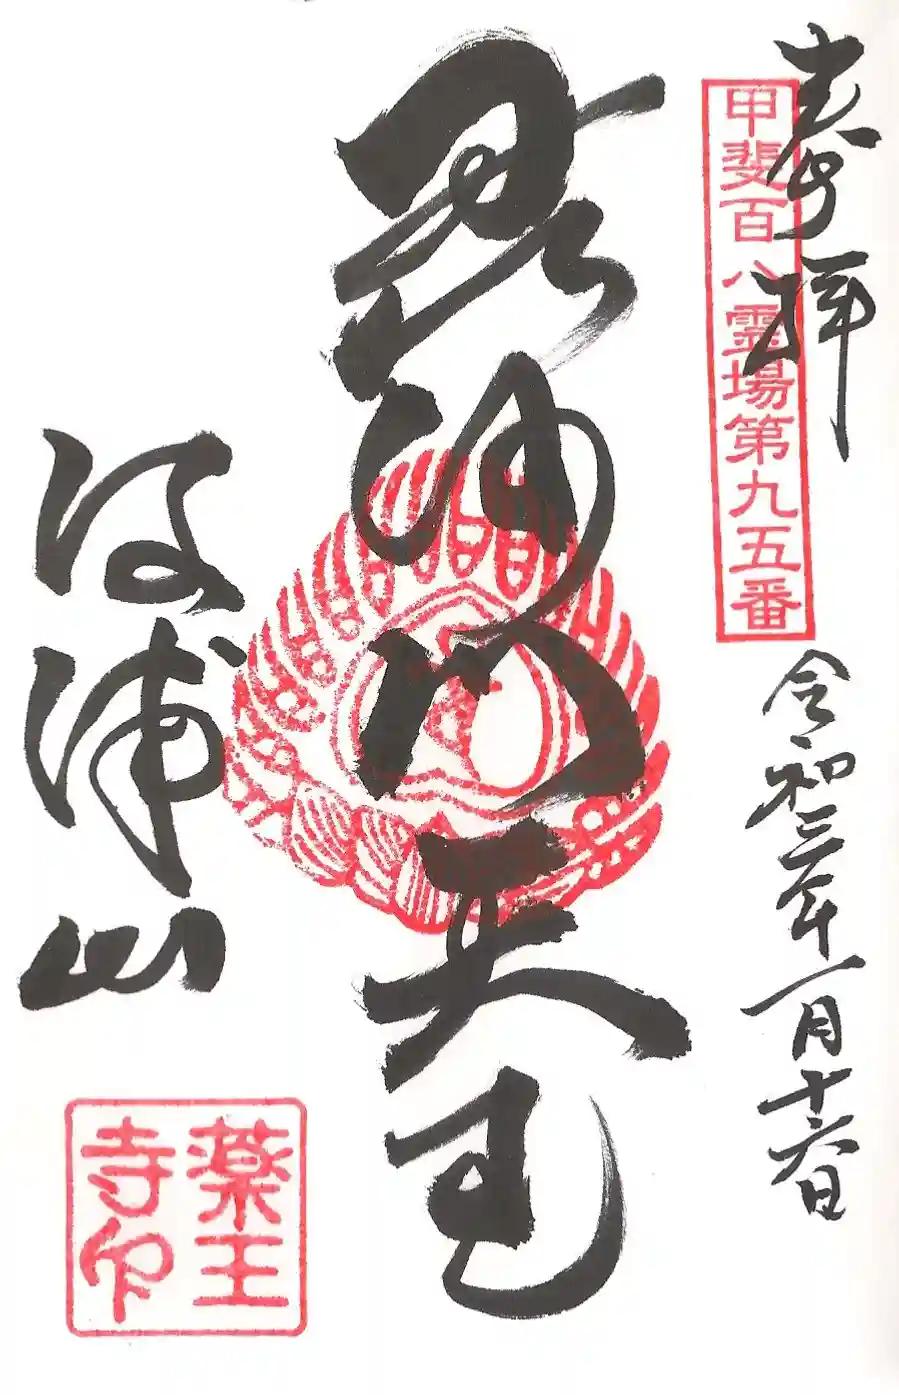 奉拝
甲斐百八霊場第九五番
令和三年一月十六日
毘沙門天王
河浦山
薬王寺印